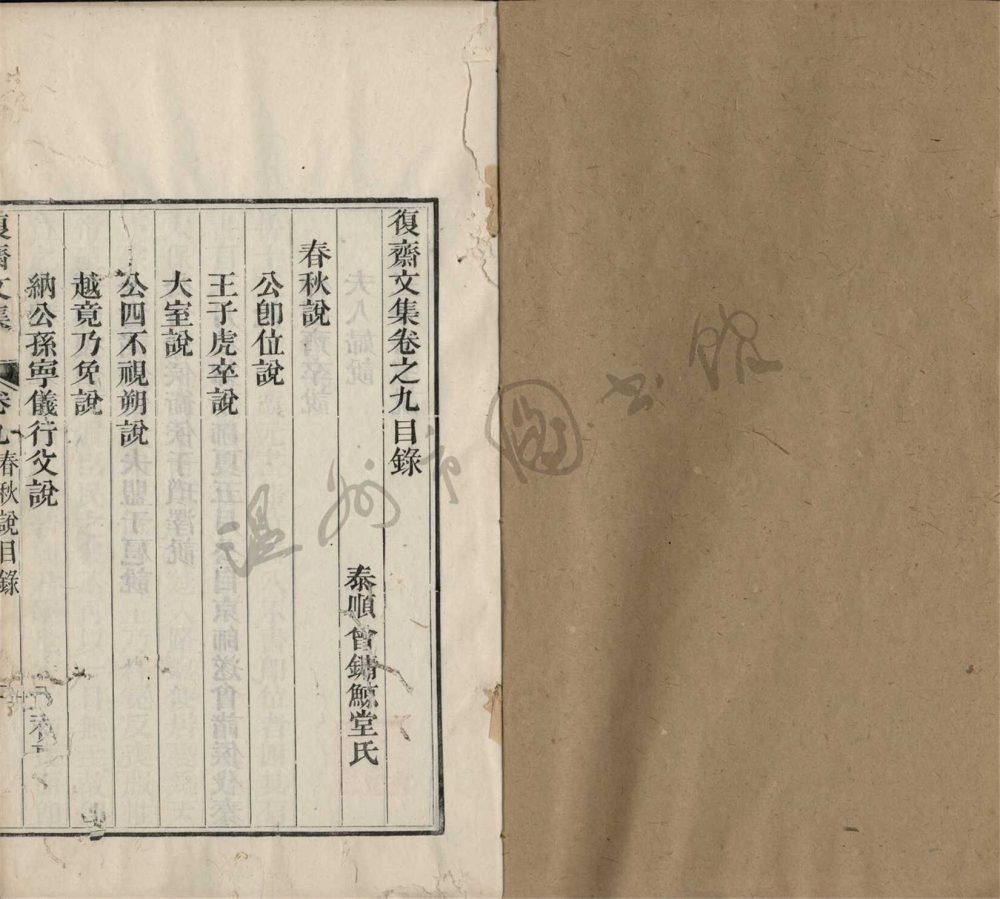 復齋文集卷之九目錄
泰順曾鏞鯨堂氏
春秋說
公卽位說
王子虎卒說
大室說
公四不視朔說
越竟乃免說
納公孫寧儀行父說
復齋文集
卷九春秋說目錄
溫州市圖書館